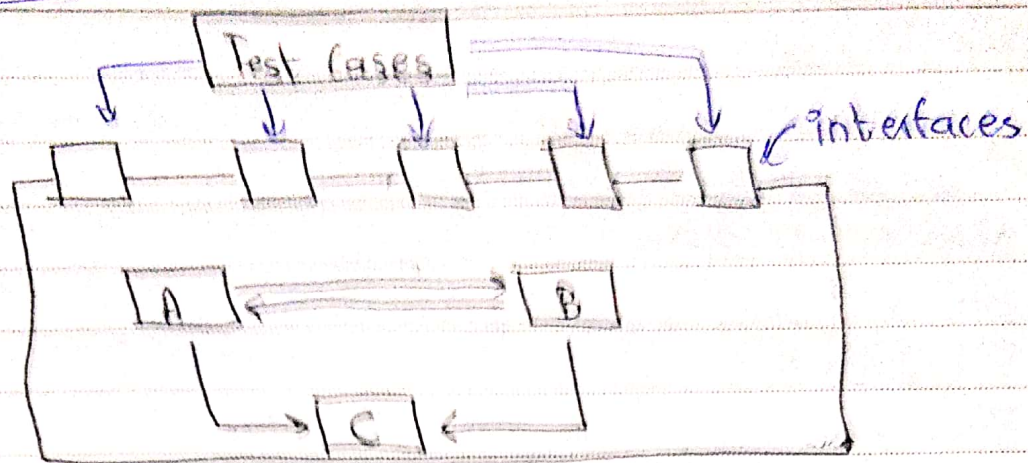 Test Cases
interfaces
A
B
C